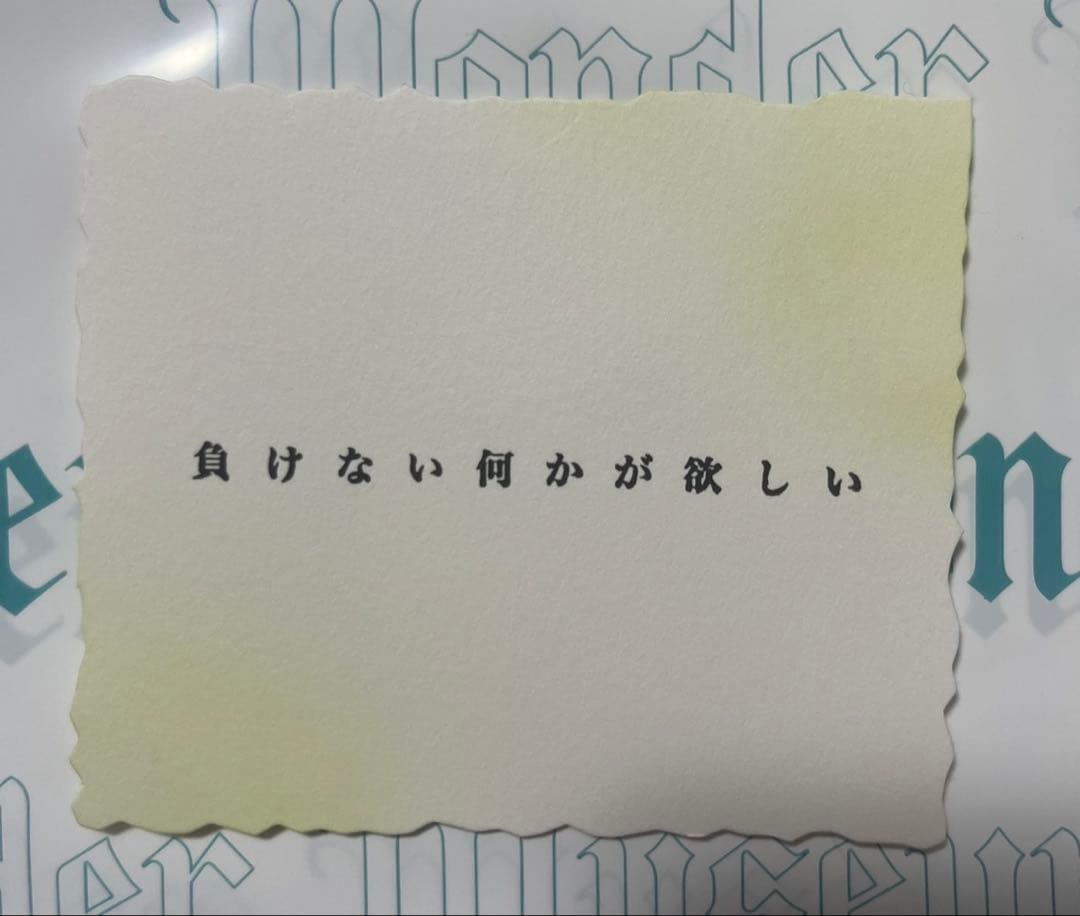 Wonder
負けない何かが欲しい